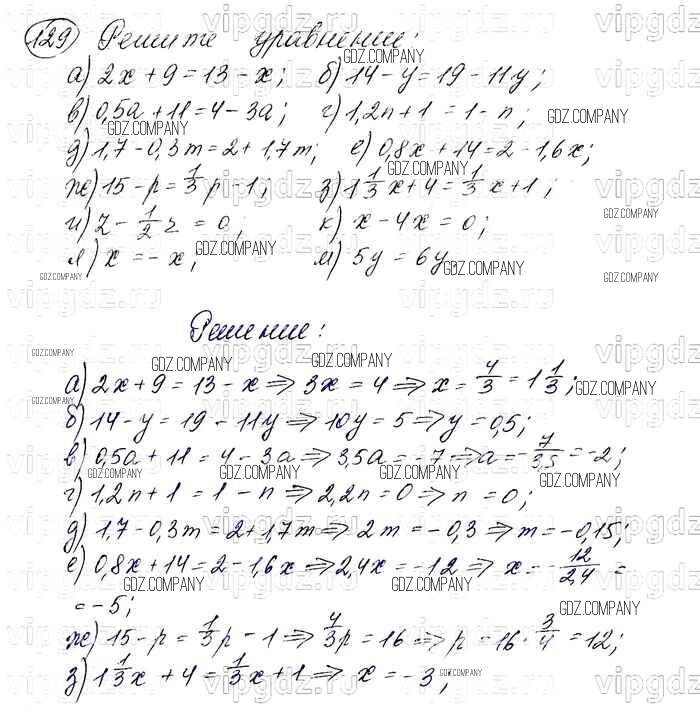 129 Решите уравнение:
а) 2x + 9 = 13 - x; б) 14 - y = 19 - 11y;
в) 0,5a + 11 = 4 - 3a; г) 1,2n + 1 = 1 - n;
д) 1,7 - 0,3m = 2 + 1,7m; е) 0,8x + 14 = 2 - 1,6x;
ж) 15 - p = 1/3 p - 1; з) 1 1/3 x + 4 = 1/3 x + 1;
и) z - 1/2 z = 0; к) x - 4x = 0;
л) x = - x; м) 5y = 6y.
Решение:
а) 2x + 9 = 13 - x ⇒ 3x = 4 ⇒ x = 4/3 = 1 1/3;
б) 14 - y = 19 - 11y ⇒ 10y = 5 ⇒ y = 0,5;
в) 0,5a + 11 = 4 - 3a ⇒ 3,5a = -7 ⇒ a = - 7/3,5 = -2;
г) 1,2n + 1 = 1 - n ⇒ 2,2n = 0 ⇒ n = 0;
д) 1,7 - 0,3m = 2 + 1,7m ⇒ 2m = -0,3 ⇒ m = -0,15;
е) 0,8x + 14 = 2 - 1,6x ⇒ 2,4x = -12 ⇒ x = - 12/2,4 =
= -5;
ж) 15 - p = 1/3 p - 1 ⇒ 4/3 p = 16 ⇒ p = 16 · 3/4 = 12;
з) 1 1/3 x + 4 = 1/3 x + 1 ⇒ x = -3;
GDZ.COMPANY
vipgdz.ru